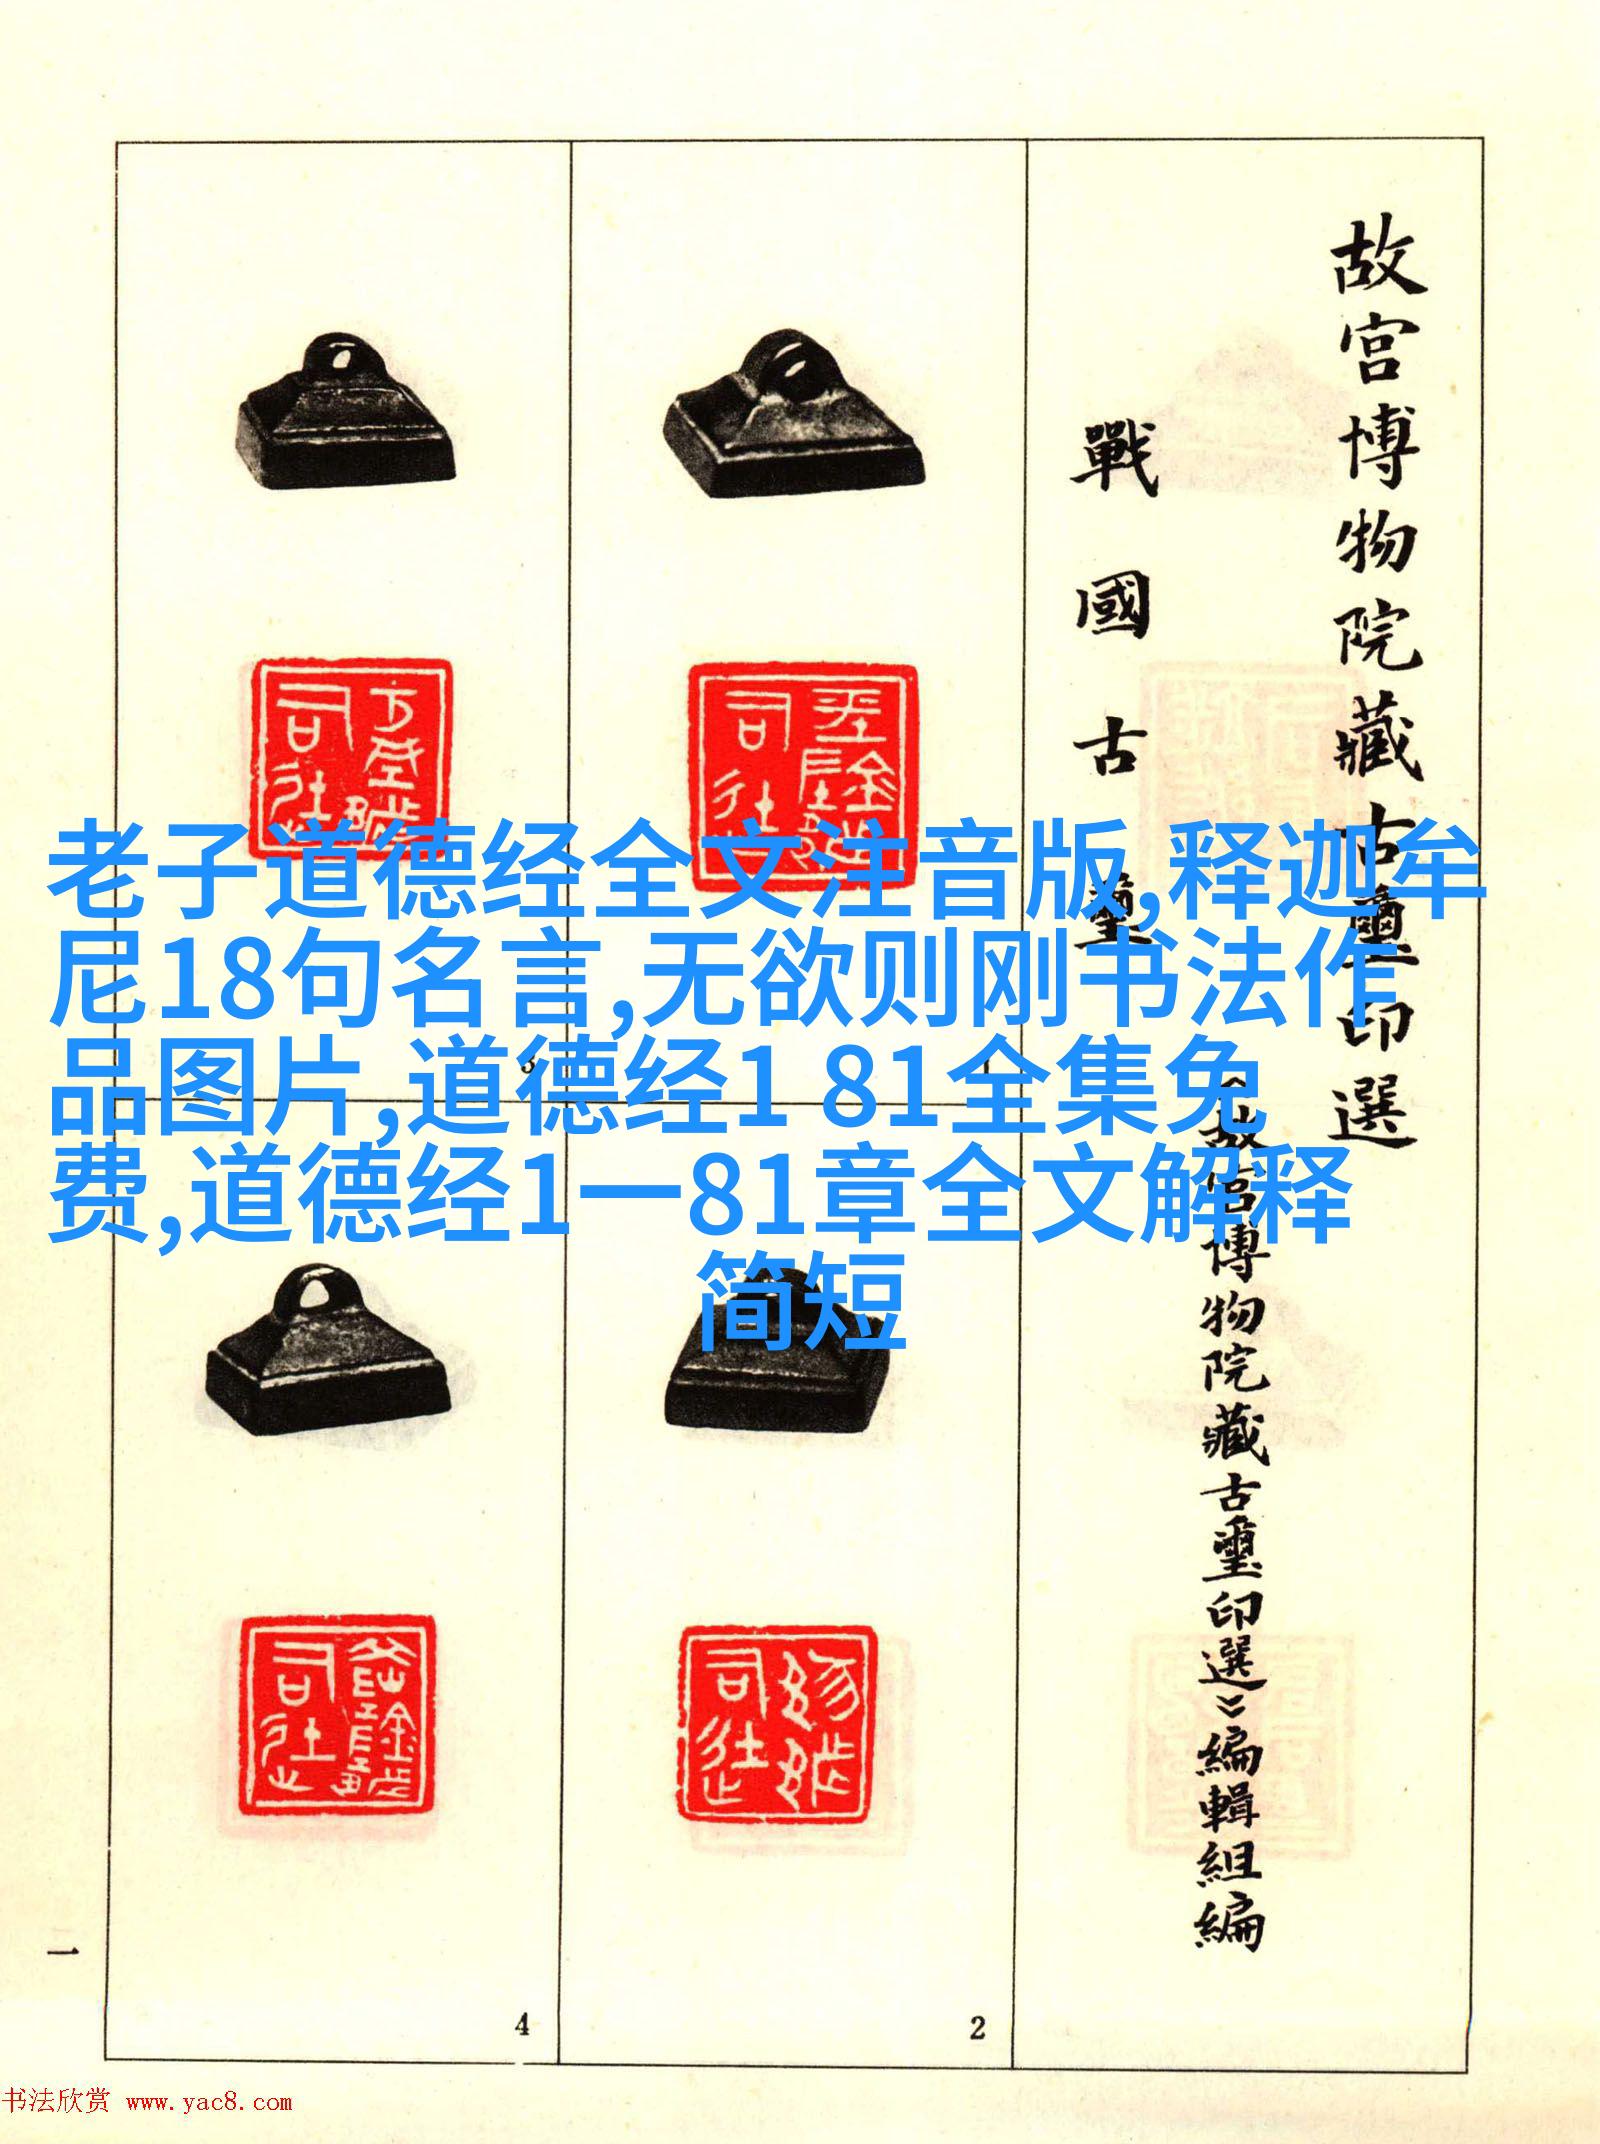 故宮博物院藏古璽印選
戰國古璽
《故宮博物院藏古璽印選》編輯組編
老子道德经全文注音版,释迦牟
尼18句名言,无欲则刚书法作
品图片,道德经1 81全集免
费,道德经1一81章全文解释
简短
3
1
4
2
一
书法欣赏 www.yac8.com